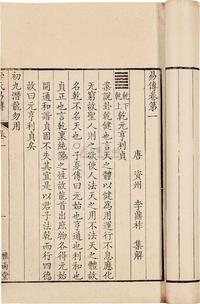 易傳卷第一
唐 資州 李鼎祚 集解
乾下
乾上
乾元亨利貞
案說卦乾健也言天之體以健為用運行不息應化
无窮故聖人則之欲使人法天之用不法天之體故
名乾不名天也○子夏傳曰元始也亨通也利和也
貞正也言乾稟純陽之性故能首出庶物各得元始
開通和諧貞固不失其宜是以君子法乾而行四德
故曰元亨利貞矣
初九潛龍勿用
李氏易傳 卷一
雅雨堂